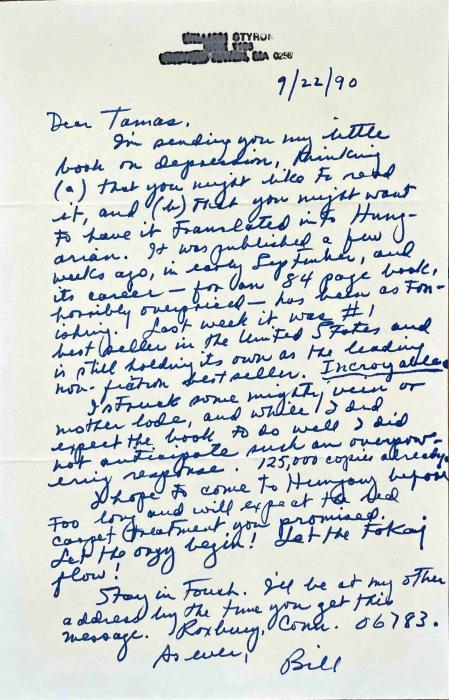 STYRON
MA 0256
9/22/90
Dear Tamas,
I'm sending you my little
book on depression, thinking
(a) that you might like to read
it, and (b) that you might want
to have it translated into Hung-
arian. It was published a few
weeks ago, in early September, and
its career — for an 84 page book,
horribly overpriced — has been aston-
ishing. Last week it was #1
best seller in the United States and
is still holding its own as the leading
non-fiction best seller. Incroyable
I struck some mighty vein or
mother lode, and while I did
expect the book to do well I did
not anticipate such an overpow-
ering response. 125,000 copies already
I hope to come to Hungary before
too long and will expect the red
carpet treatment you promised.
Let the orgy begin! Let the Tokaj
flow!
Stay in touch. I'll be at my other
address by the time you get this
message. Roxbury, Conn. 06783.
As ever,
Bill